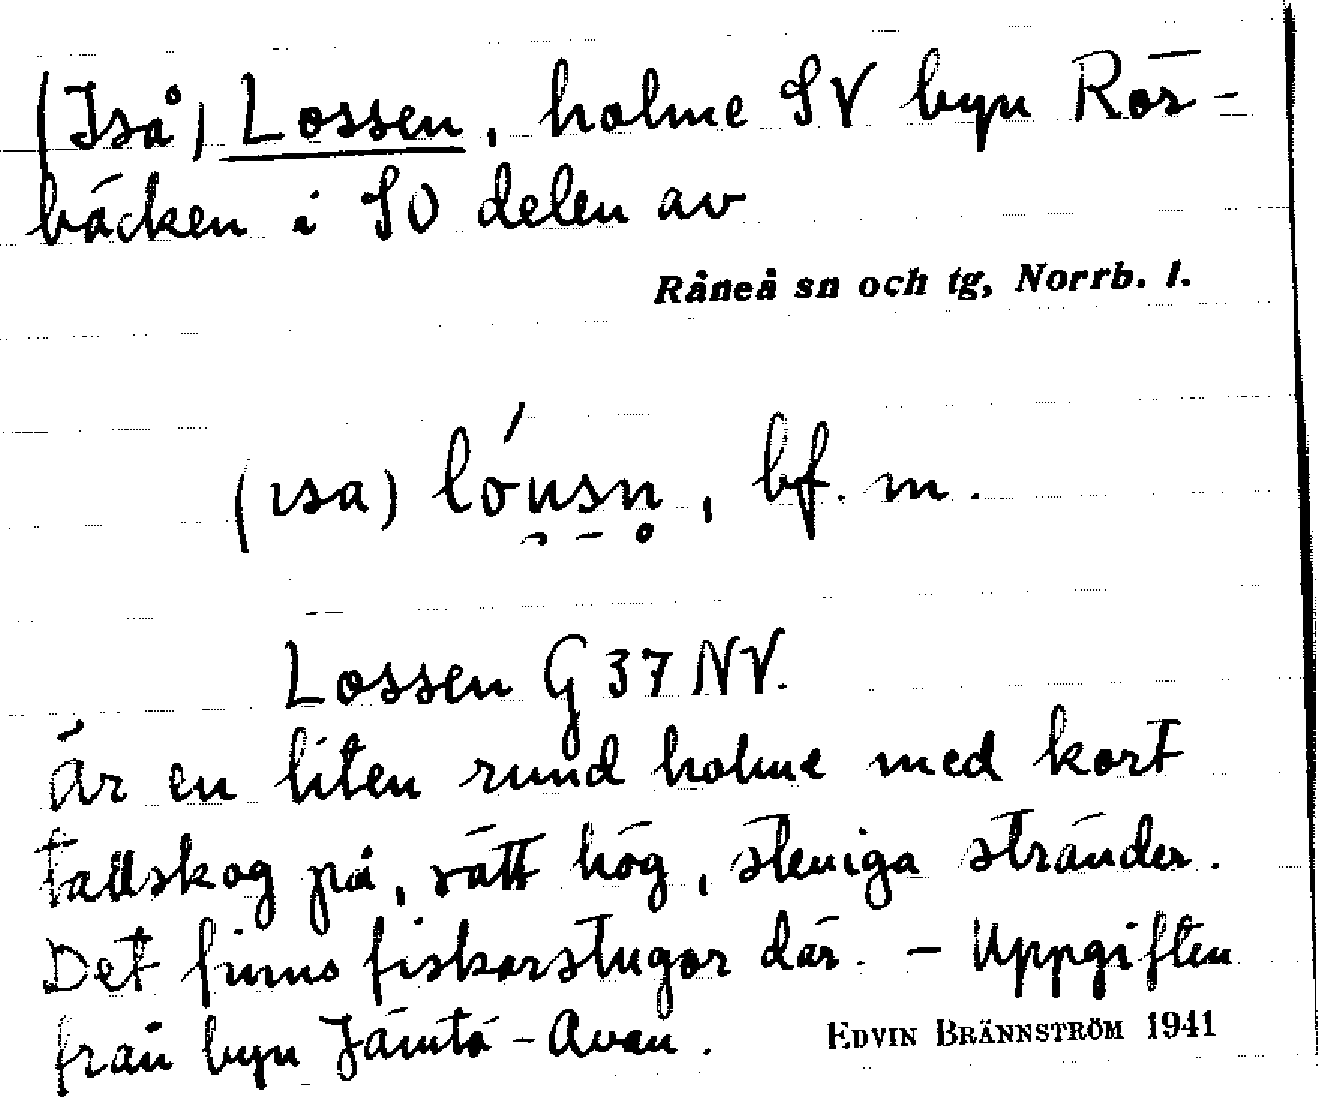 (Iså) Lossen, holme SV byn Rör-
bäcken i SO delen av
Råneå sn och tg, Norrb. l.
(ısa) lóusn̥, bf. m.
Lossen G 37 NV.
Är en liten rund holme med kort
tallskog på, rätt hög, steniga stränder.
Det finns fiskarstugor där. – Uppgiften
från byn Jämtö-Avan.
EDVIN BRÄNNSTRÖM 1941